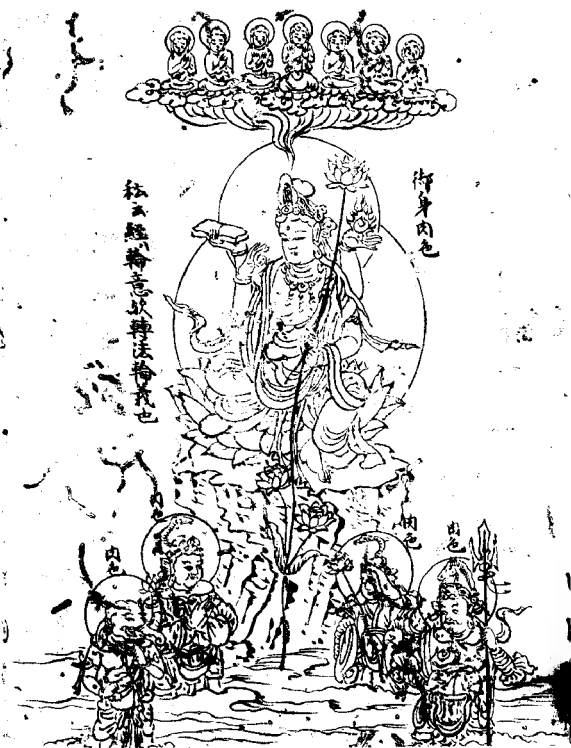 御身肉色
私云経ハ輪意歟轉法輪義也
肉色
肉色
肉色
肉色